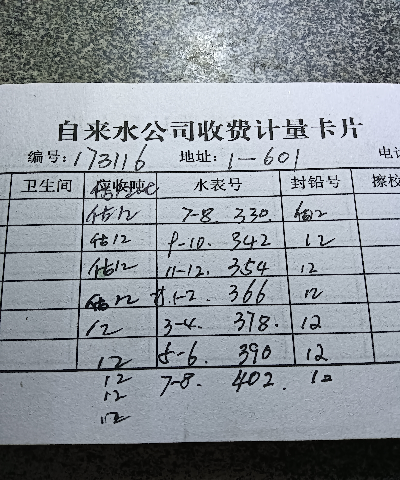 自来水公司收费计量卡片
编号: 173116 地址: 1-601 电话
卫生间 水表号 封铅号 擦校
估12 7-8. 330. 估12
估12 9-10. 342 12
估12 11-12. 354 12
估12 1-2. 366 12
12 3-4. 378. 12
12 5-6. 390 12
12 7-8. 402. 12
12
12